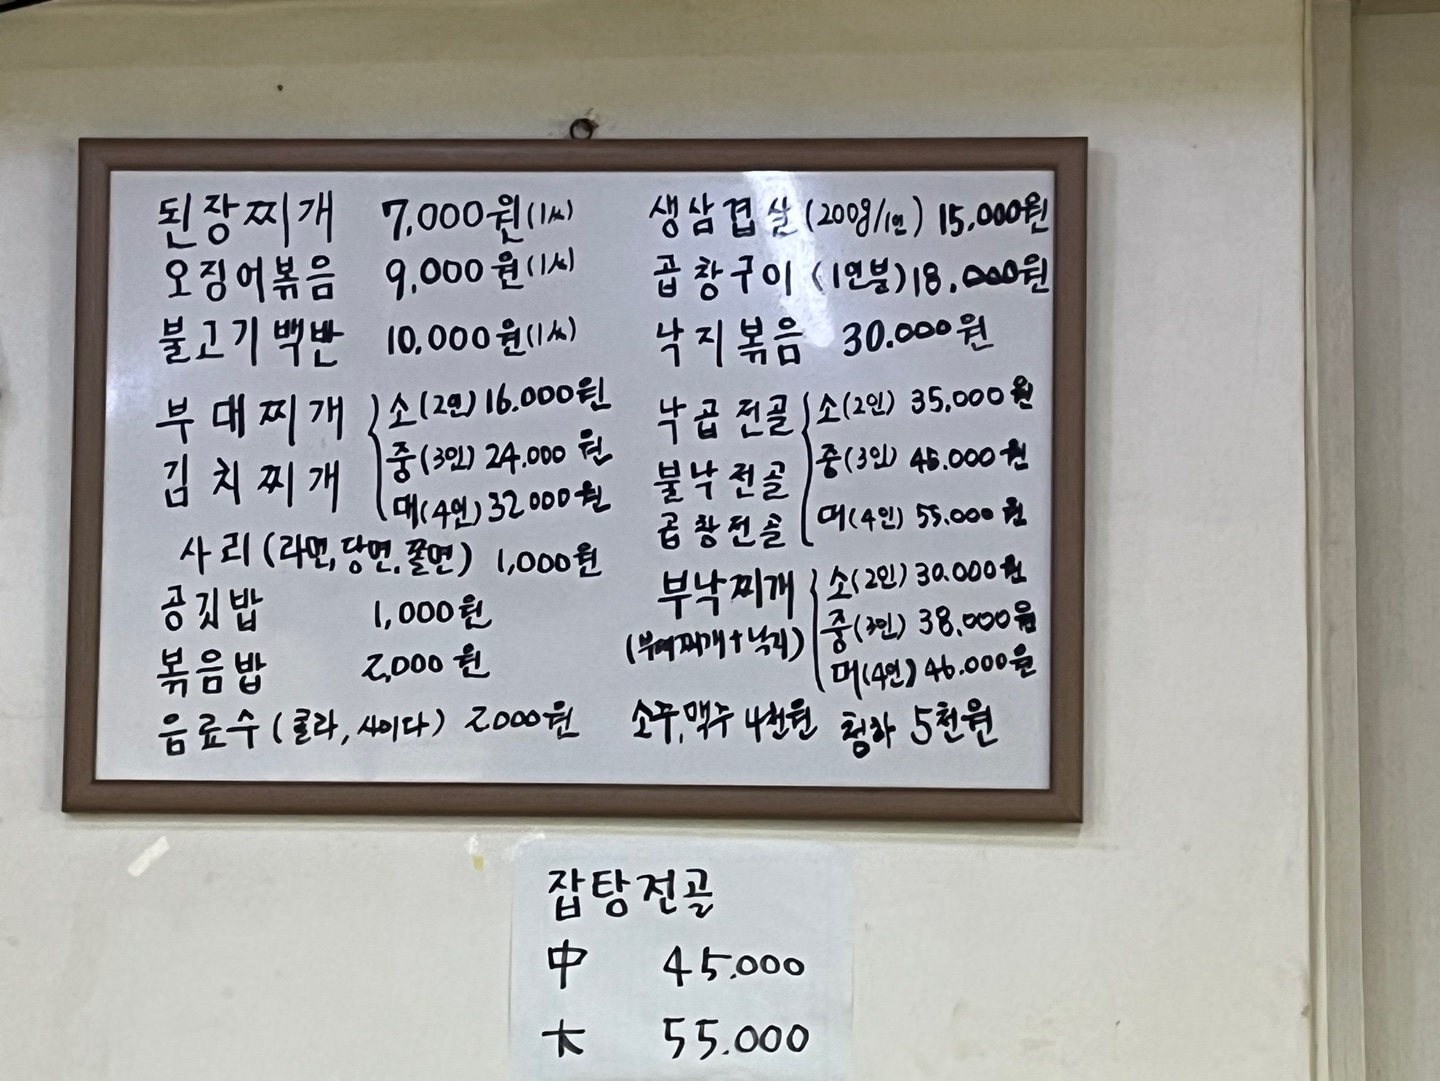 된장찌개 7,000원(1人)
오징어볶음 9,000원(1人)
불고기백반 10,000원(1人)
부대찌개
김치찌개
소(2인) 16.000원
중(3인) 24.000원
대(4인) 32000원
사리(라면,당면.쫄면) 1,000원
공깃밥 1,000원
볶음밥 2,000원
음료수(콜라,사이다) 2000원
생삼겹살(200g/1인) 15,000원
곱창구이(1인분) 18.000원
낙지볶음 30.000원
낙곱전골
불낙전골
곱창전골
소(2인) 35,000원
중(3인) 45.000원
대(4인) 55.000원
부낙찌개
(부대찌개+낙지)
소(2인) 30.000원
중(3인) 38,000원
대(4인) 46.000원
소주,맥주 4천원 청하 5천원
잡탕전골
中 45.000
大 55.000